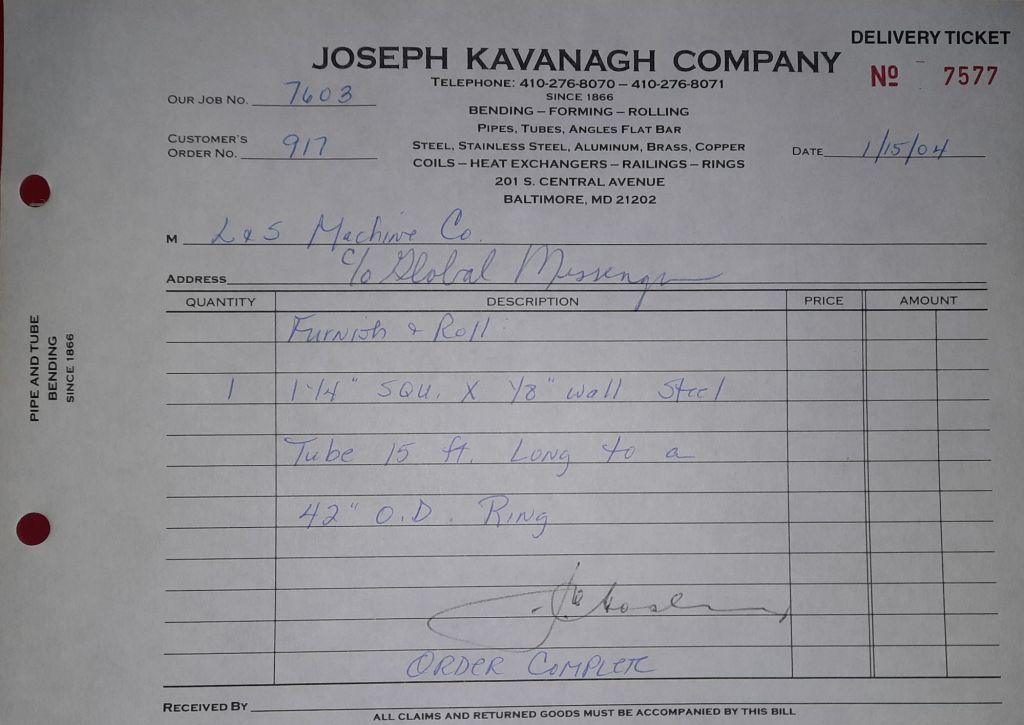 DELIVERY TICKET
JOSEPH KAVANAGH COMPANY
Nº 7577
TELEPHONE: 410-276-8070 – 410-276-8071
SINCE 1866
OUR JOB NO. 7603
BENDING – FORMING – ROLLING
PIPES, TUBES, ANGLES FLAT BAR
CUSTOMER'S
ORDER NO. 917
STEEL, STAINLESS STEEL, ALUMINUM, BRASS, COPPER
DATE 1/15/04
COILS – HEAT EXCHANGERS – RAILINGS – RINGS
201 S. CENTRAL AVENUE
BALTIMORE, MD 21202
M L & S Machine Co.
ADDRESS c/o Global Messenger
QUANTITY DESCRIPTION PRICE AMOUNT
Furnish & Roll:
1 1-1/4" SQU. X 1/8" wall Steel
Tube 15 ft. Long to a
42" O.D. Ring
ORDER COMPLETE
RECEIVED BY
ALL CLAIMS AND RETURNED GOODS MUST BE ACCOMPANIED BY THIS BILL
PIPE AND TUBE
BENDING
SINCE 1866